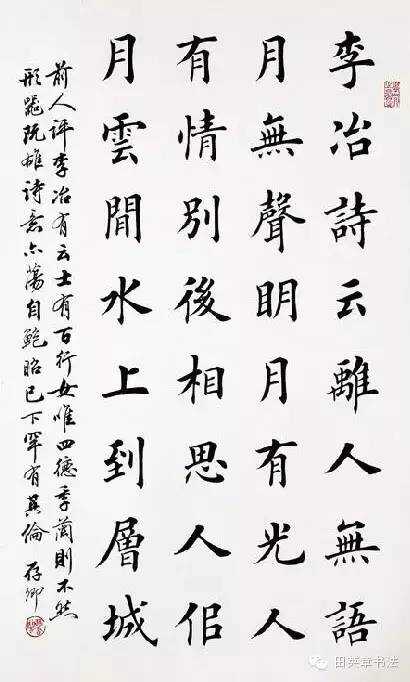 李冶詩云離人無語
月無聲明月有光人
有情別後相思人佀
月雲間水上到層城
前人評李冶有云士有百行女唯四德季蘭則不然
形器既雌詩意亦蕩自鮑昭已下罕有其倫 存卿
田英章书法